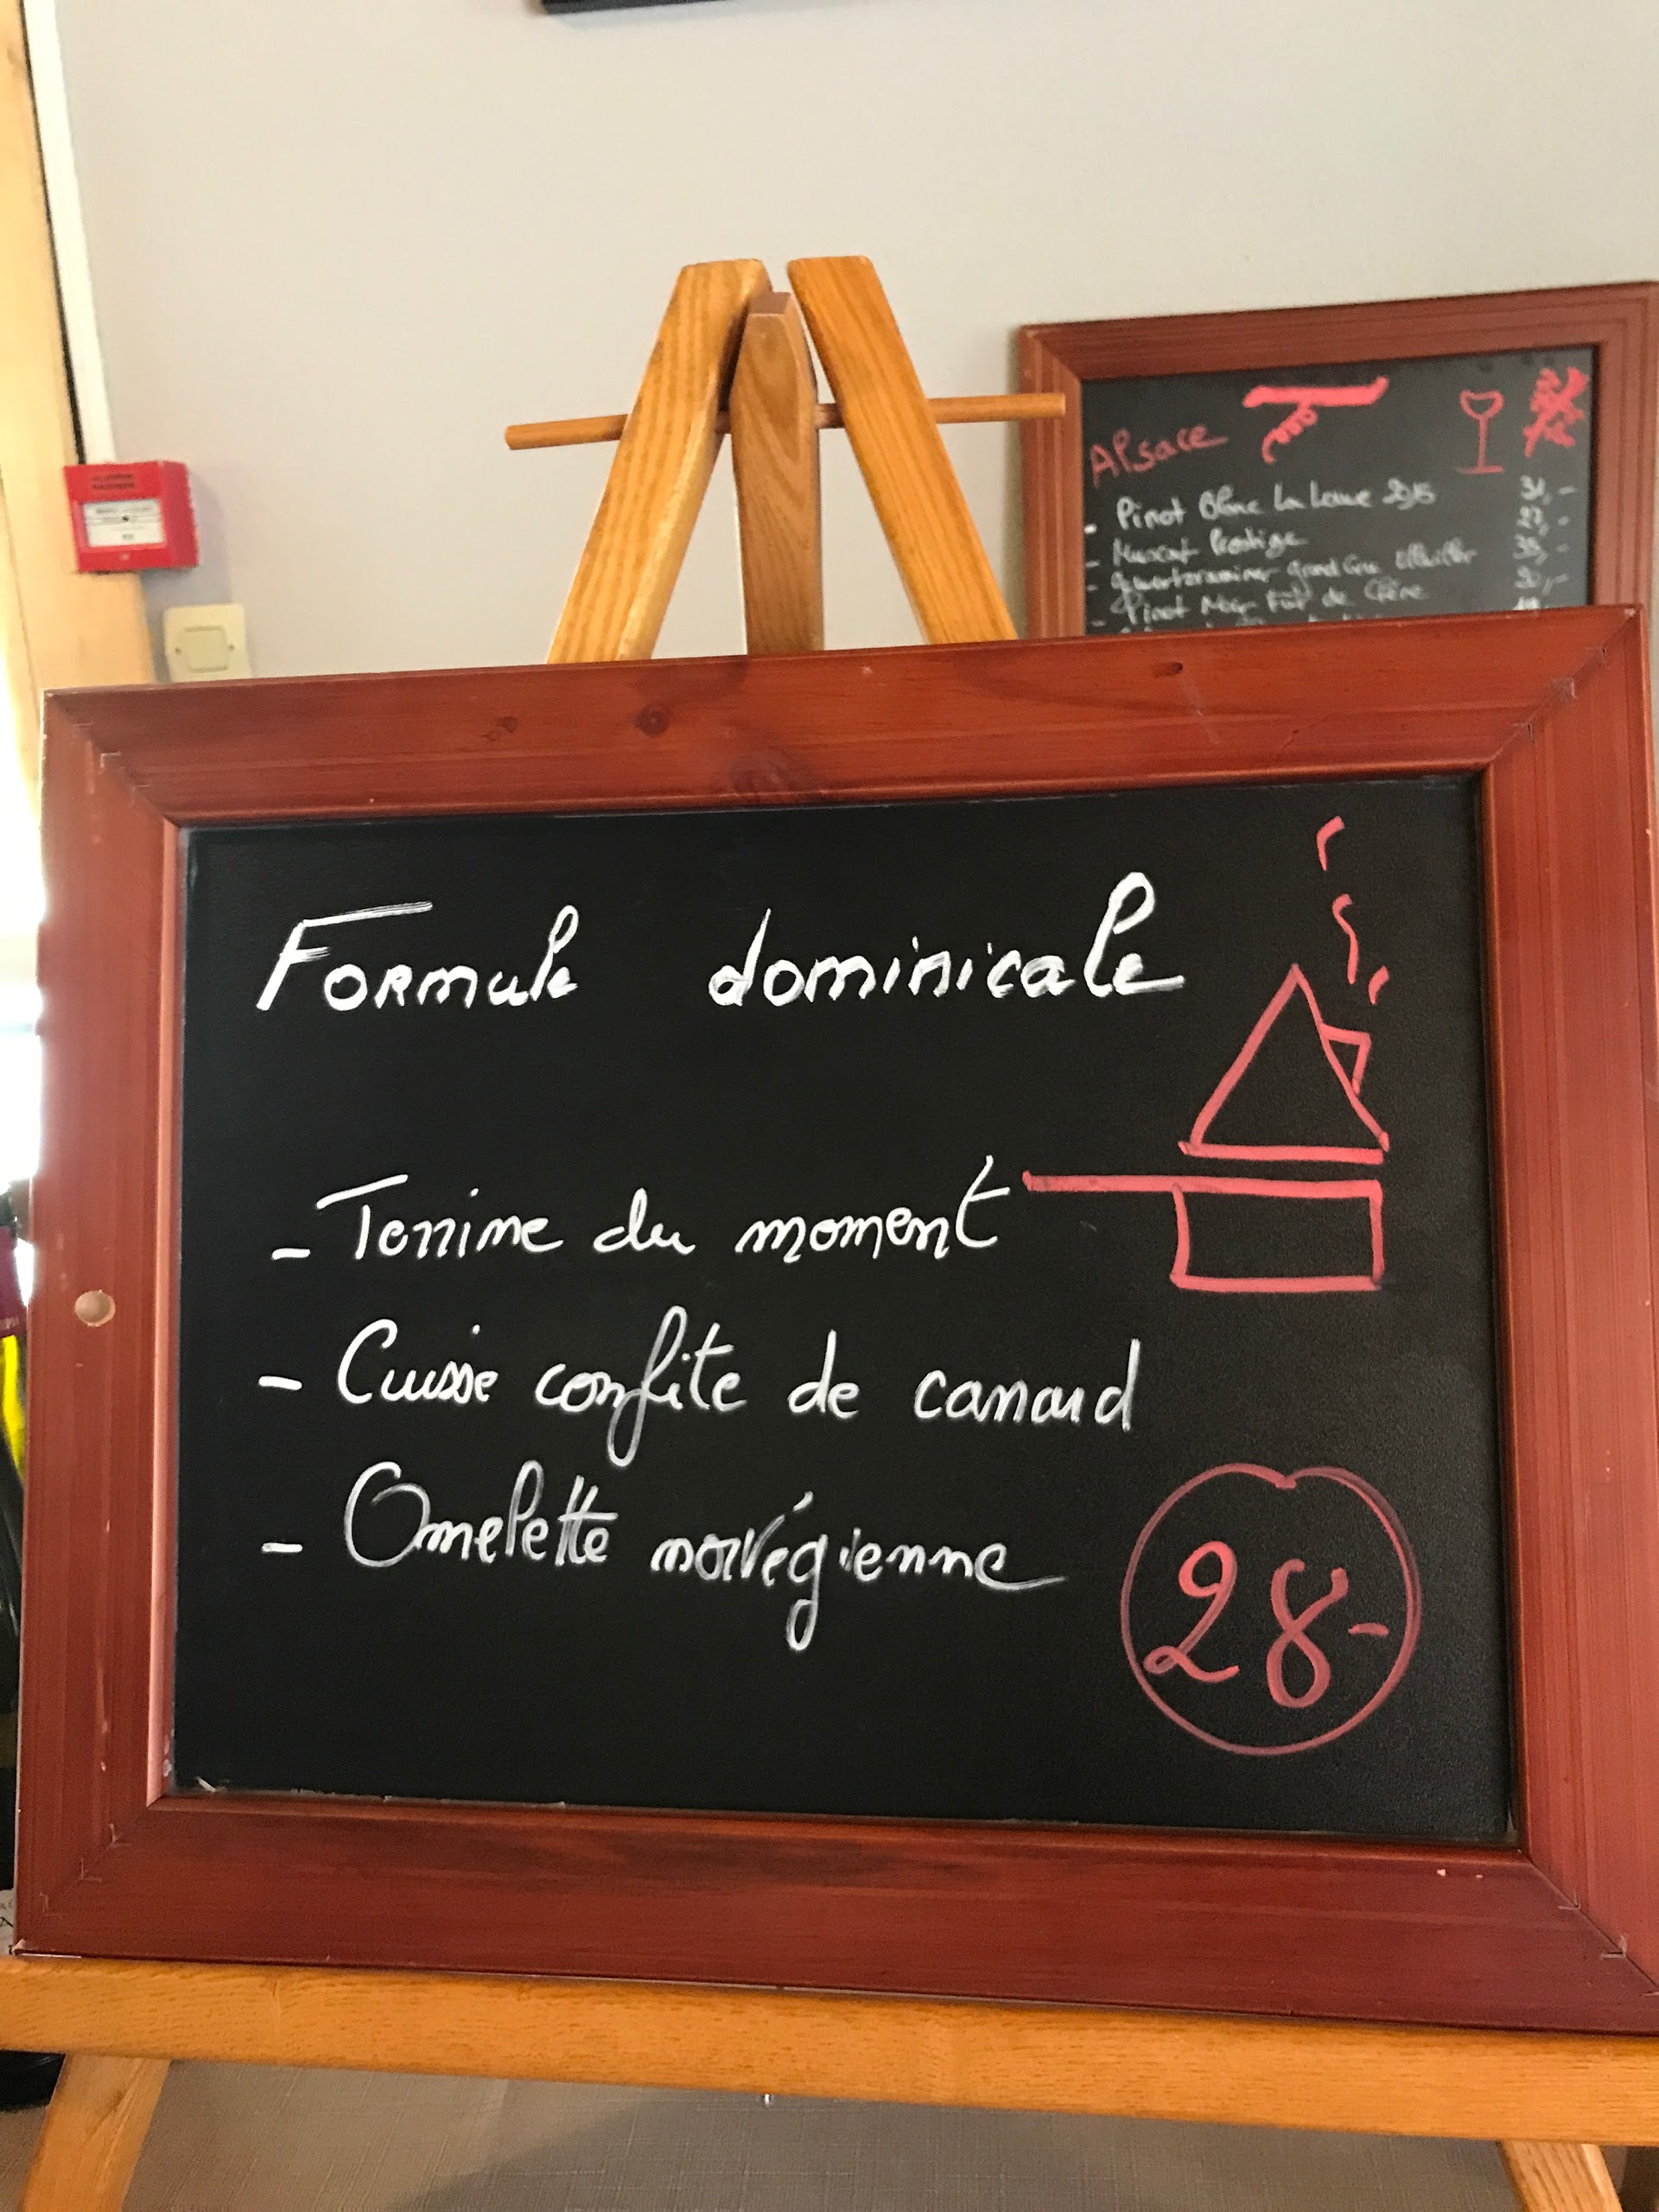 Alsace
- Pinot Blanc La Lune 2015 31,-
- Muscat Prestige 27,-
- Gewurtzraminer Grand Cru 35,-
- Pinot Noir Fût de Chêne
Formule dominicale
- Terrine du moment
- Cuisse confite de canard
- Omelette norvégienne
28-